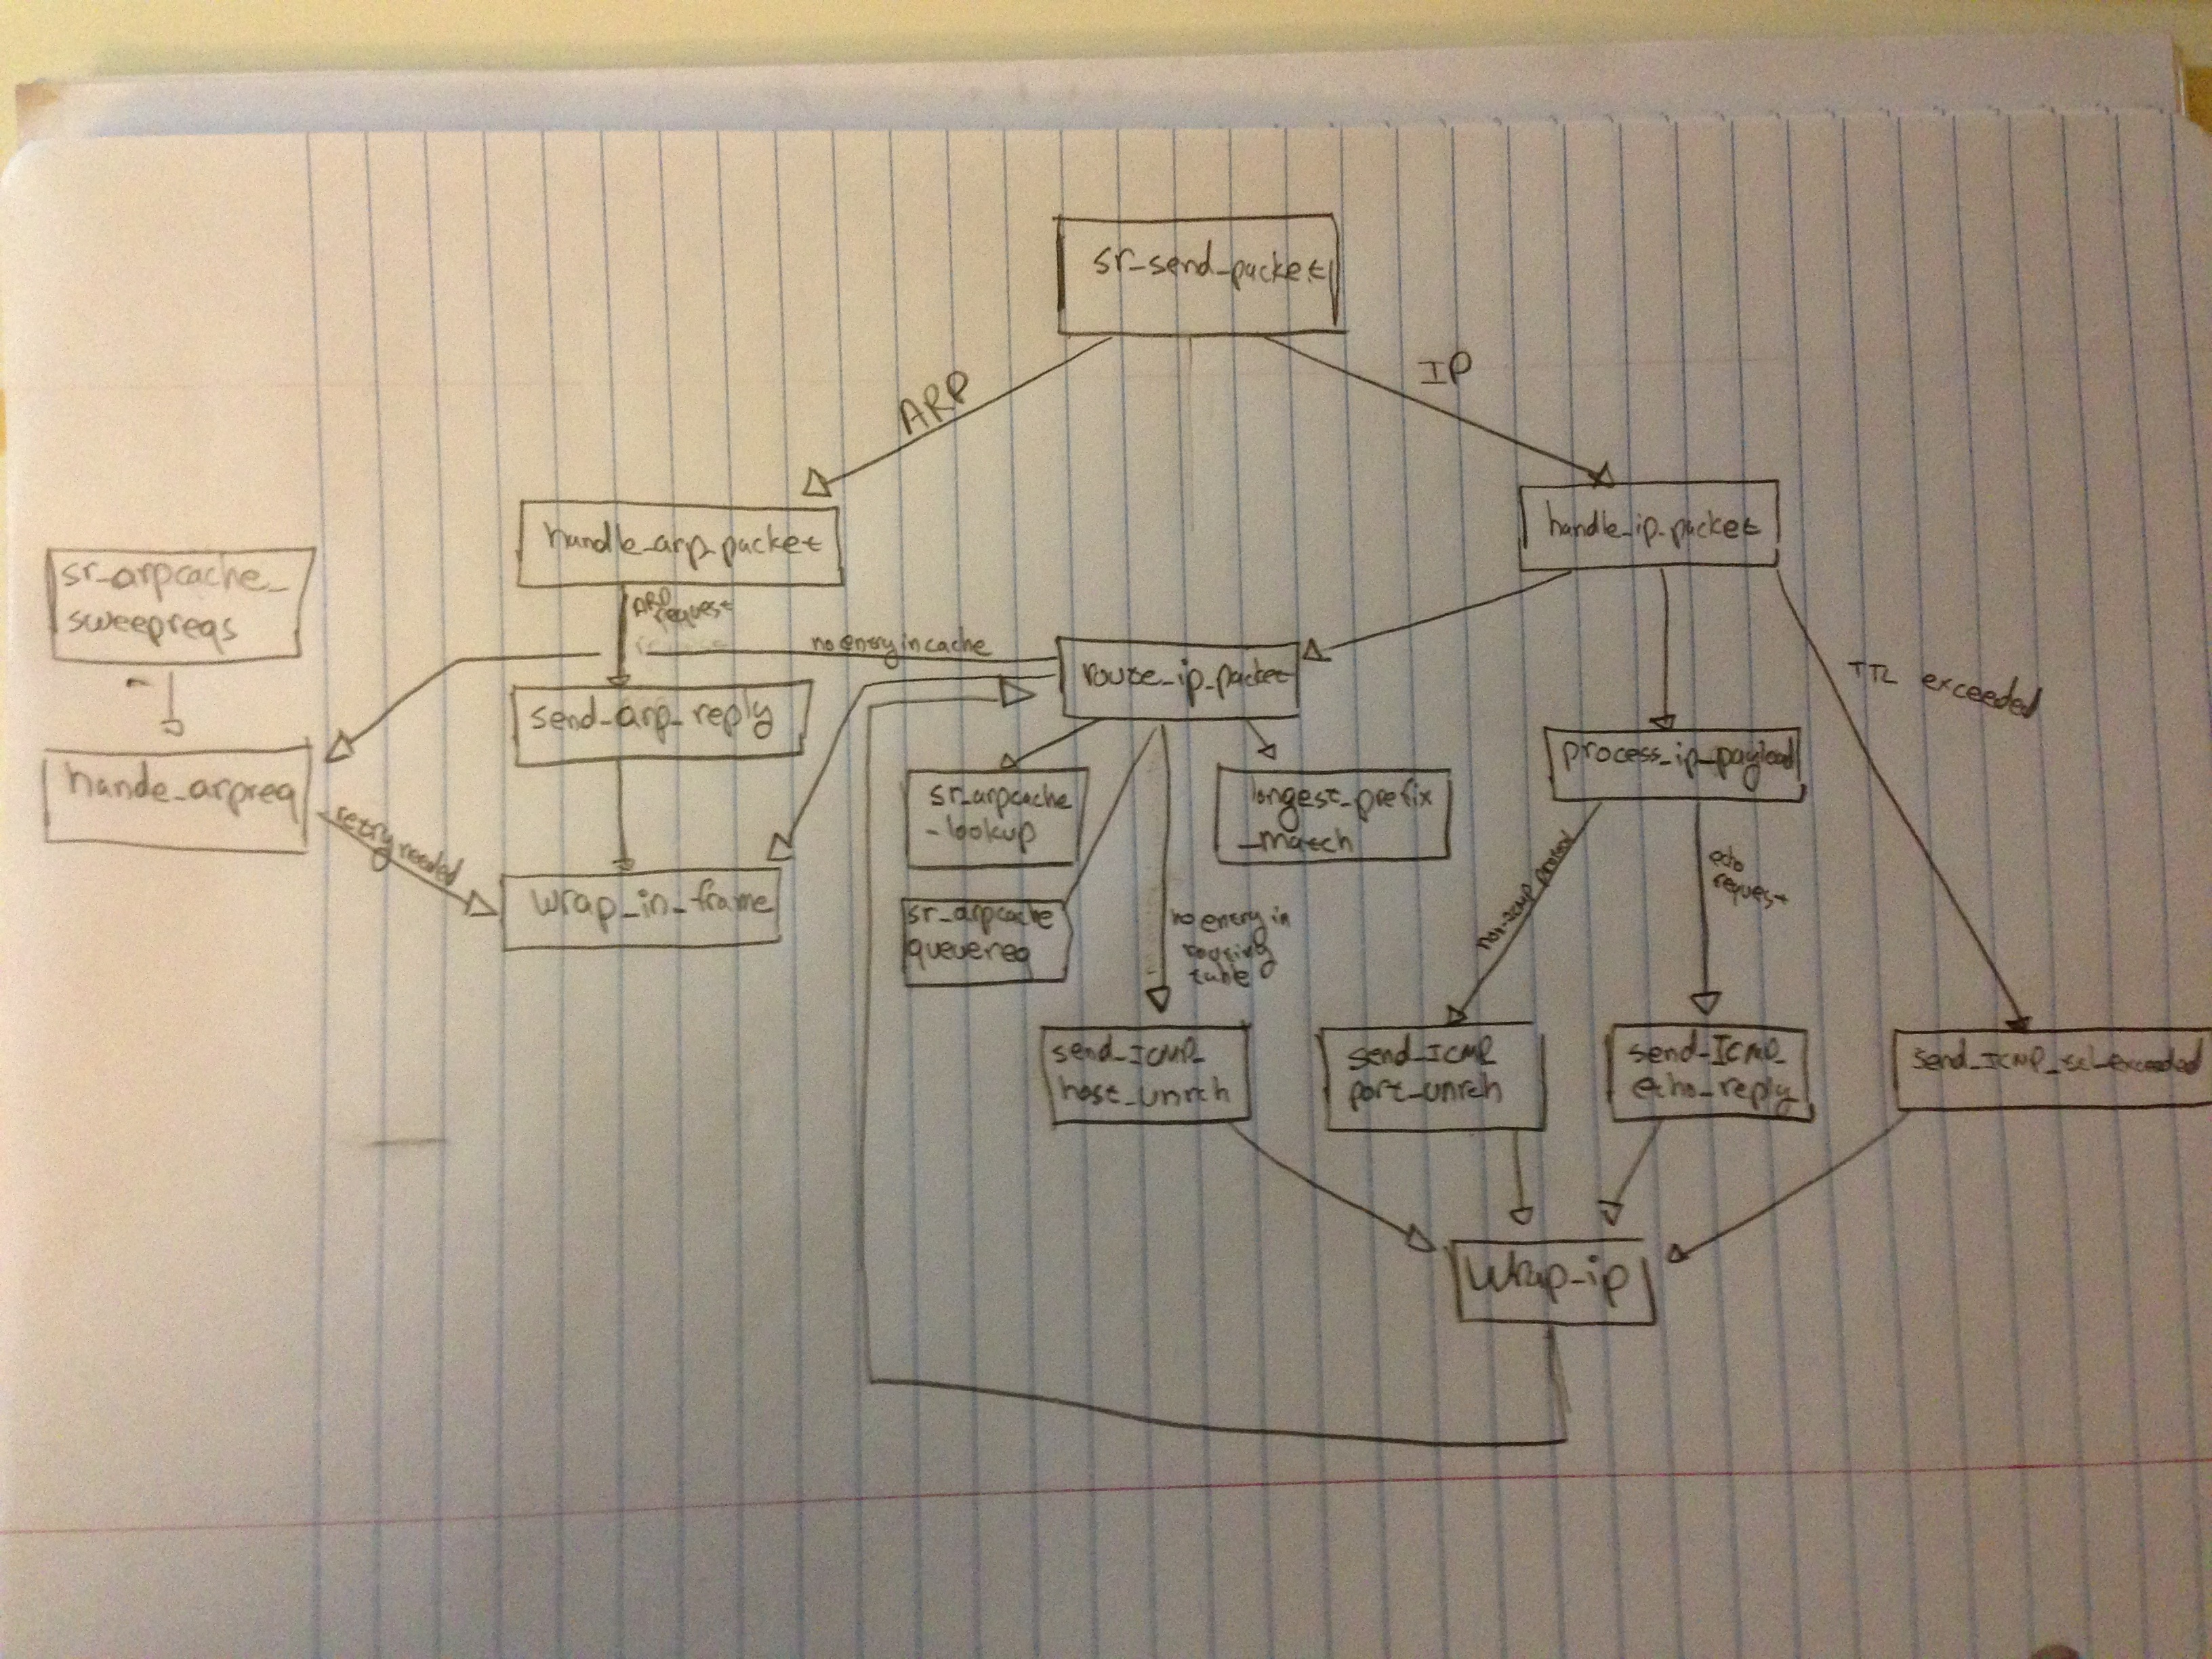 sr_send_packet
ARP
IP
handle_arp_packet
handle_ip_packet
sr_arpcache_
sweepreqs
ARP
request
no entry in cache
route_ip_packet
TTL exceeded
send_arp_reply
process_ip_payload
hande_arpreq
retry needed
sr_arpcache
-lookup
longest_prefix
_match
wrap_in_frame
sr_arpcache
queuereq
no entry in
routing
table
non-ICMP protocol
echo
request
send_ICMP_
host_unrch
send_ICMP_
port_unrch
send_ICMP_
echo_reply
send_ICMP_ttl_exceeded
wrap_ip